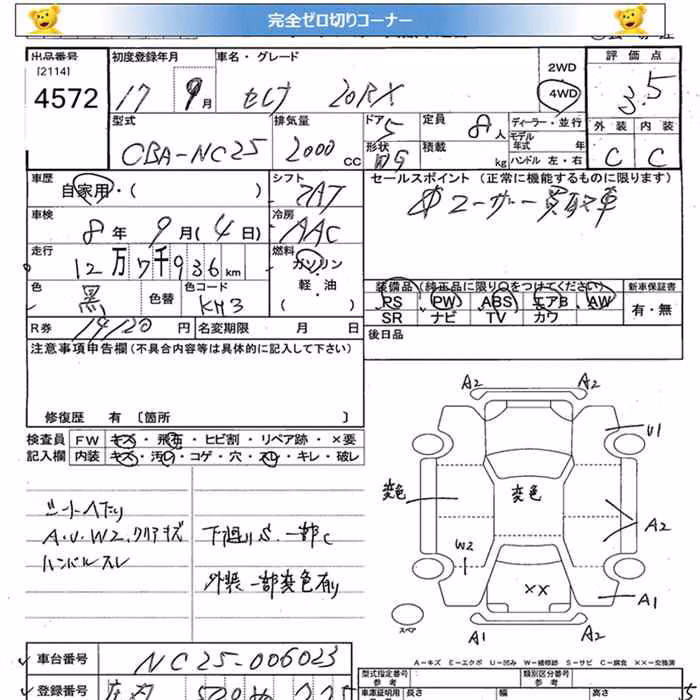 完全ゼロ切りコーナー
出品番号 初度登録年月 車名・グレード 2WD 評価点
[2114]
4572 17 9月 セレナ 20RX 4WD 3.5
型式 排気量 ドア 定員 ディーラー・並行 外装 内装
CBA-NC25 2000cc 5 8人 モデル年式 年 C C
形状 積載 kg ハンドル 左・右
車歴 シフト セールスポイント (正常に機能するものに限ります)
自家用・( ) 7AT ユーザー買取車
車検 冷房
8年 9月(4日) AAC
走行 燃料
12万7千936km ガソリン
色 色替 色コード 軽・油 装備品(純正品に限り○をつけてください) 新車保証書
黒 KH3 ( ) PS PW ABS エアB AW 有・無
SR ナビ TV カワ
R券 円 名変期限 月 日 後日品
注意事項申告欄(不具合内容等は具体的に記入して下さい)
修復歴 有 〔箇所 〕
検査員 FW キズ・飛石・ヒビ割・リペア跡・×要
記入欄 内装 キズ・汚れ・コゲ・穴・スレ・キレ・破レ
シートヘタリ
A.U.W2.クリアキズ 下廻りS.一部C
ハンドルスレ
外装一部変色有り
A2 A2
U1
変色 変色
A2
W2
××
A1
A1 A2
スペア
A-キズ E-エクボ U-凹み W-補修跡 S-サビ C-腐食 ××-交換済
車台番号 NC25-006023
型式指定番号 類別区分番号
登録番号
車庫証明用 参考 長さ 幅 高さ